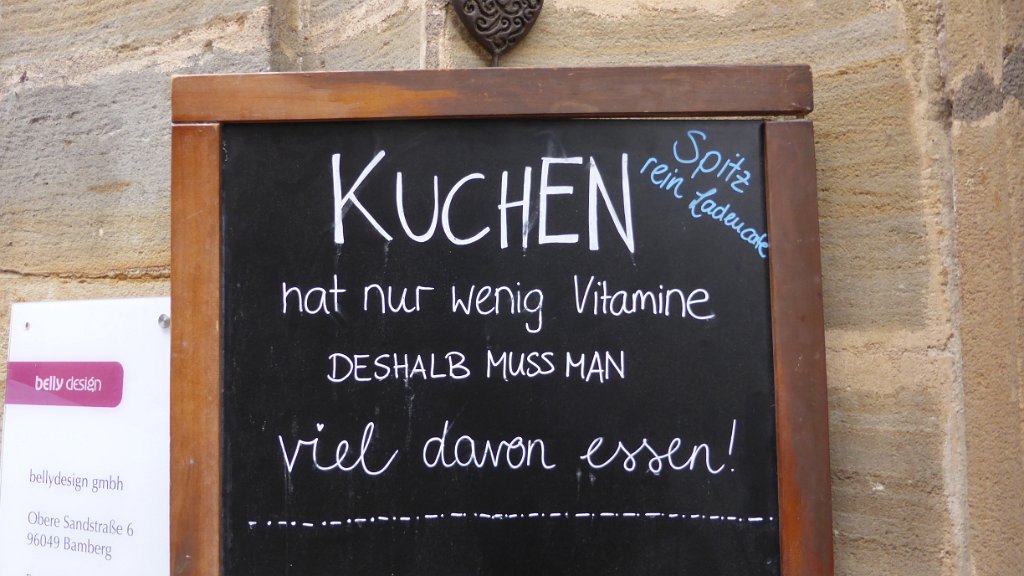 KUCHEN
hat nur wenig Vitamine
DESHALB MUSS MAN
viel davon essen!
Spitz
rein Ladencafe
belly design
bellydesign gmbh
Obere Sandstraße 6
96049 Bamberg